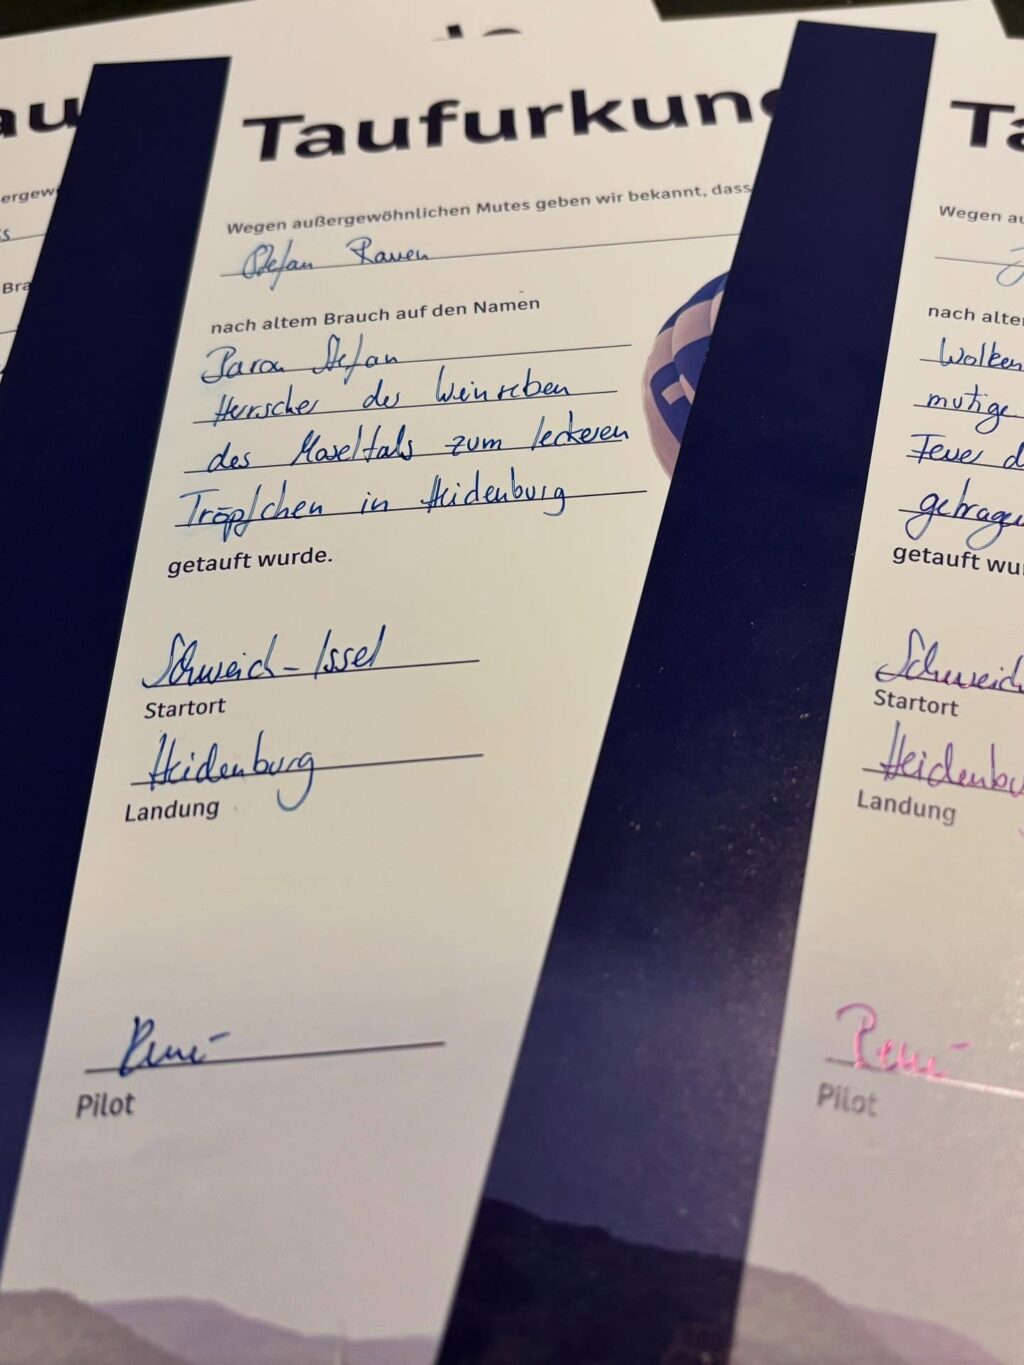 Taufurkun
Wegen außergewöhnlichen Mutes geben wir bekannt, dass
Stefan Raven
nach altem Brauch auf den Namen
Baron Stefan
Herrscher der Weinreben
des Moseltals zum leckeren
Tröpfchen in Heidenburg
getauft wurde.
Schweich-Issel
Startort
Heidenburg
Landung
René
Pilot
au
Bra
Ta
Wegen au
nach alte
Wolken
mutige
Feuer d
getragen
getauft wu
Schweich
Startort
Heidenbu
Landung
René
Pilot